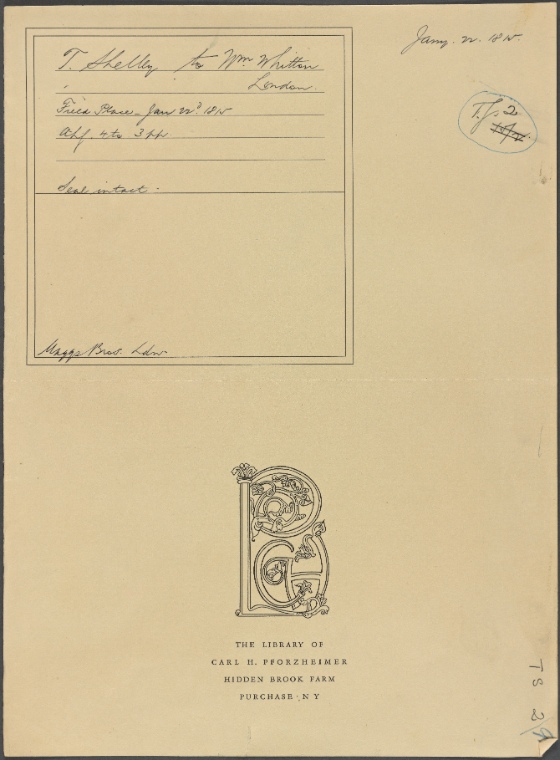 Jany. 22. 1815.
T. Shelley to Wm Whitton
London.
Field Place - Jan 22d. 1815
4to 3 pp
Seal intact -
Maggs Bros. Ldn
T.S. 2
THE LIBRARY OF
CARL H. PFORZHEIMER
HIDDEN BROOK FARM
PURCHASE · N Y
TS 2